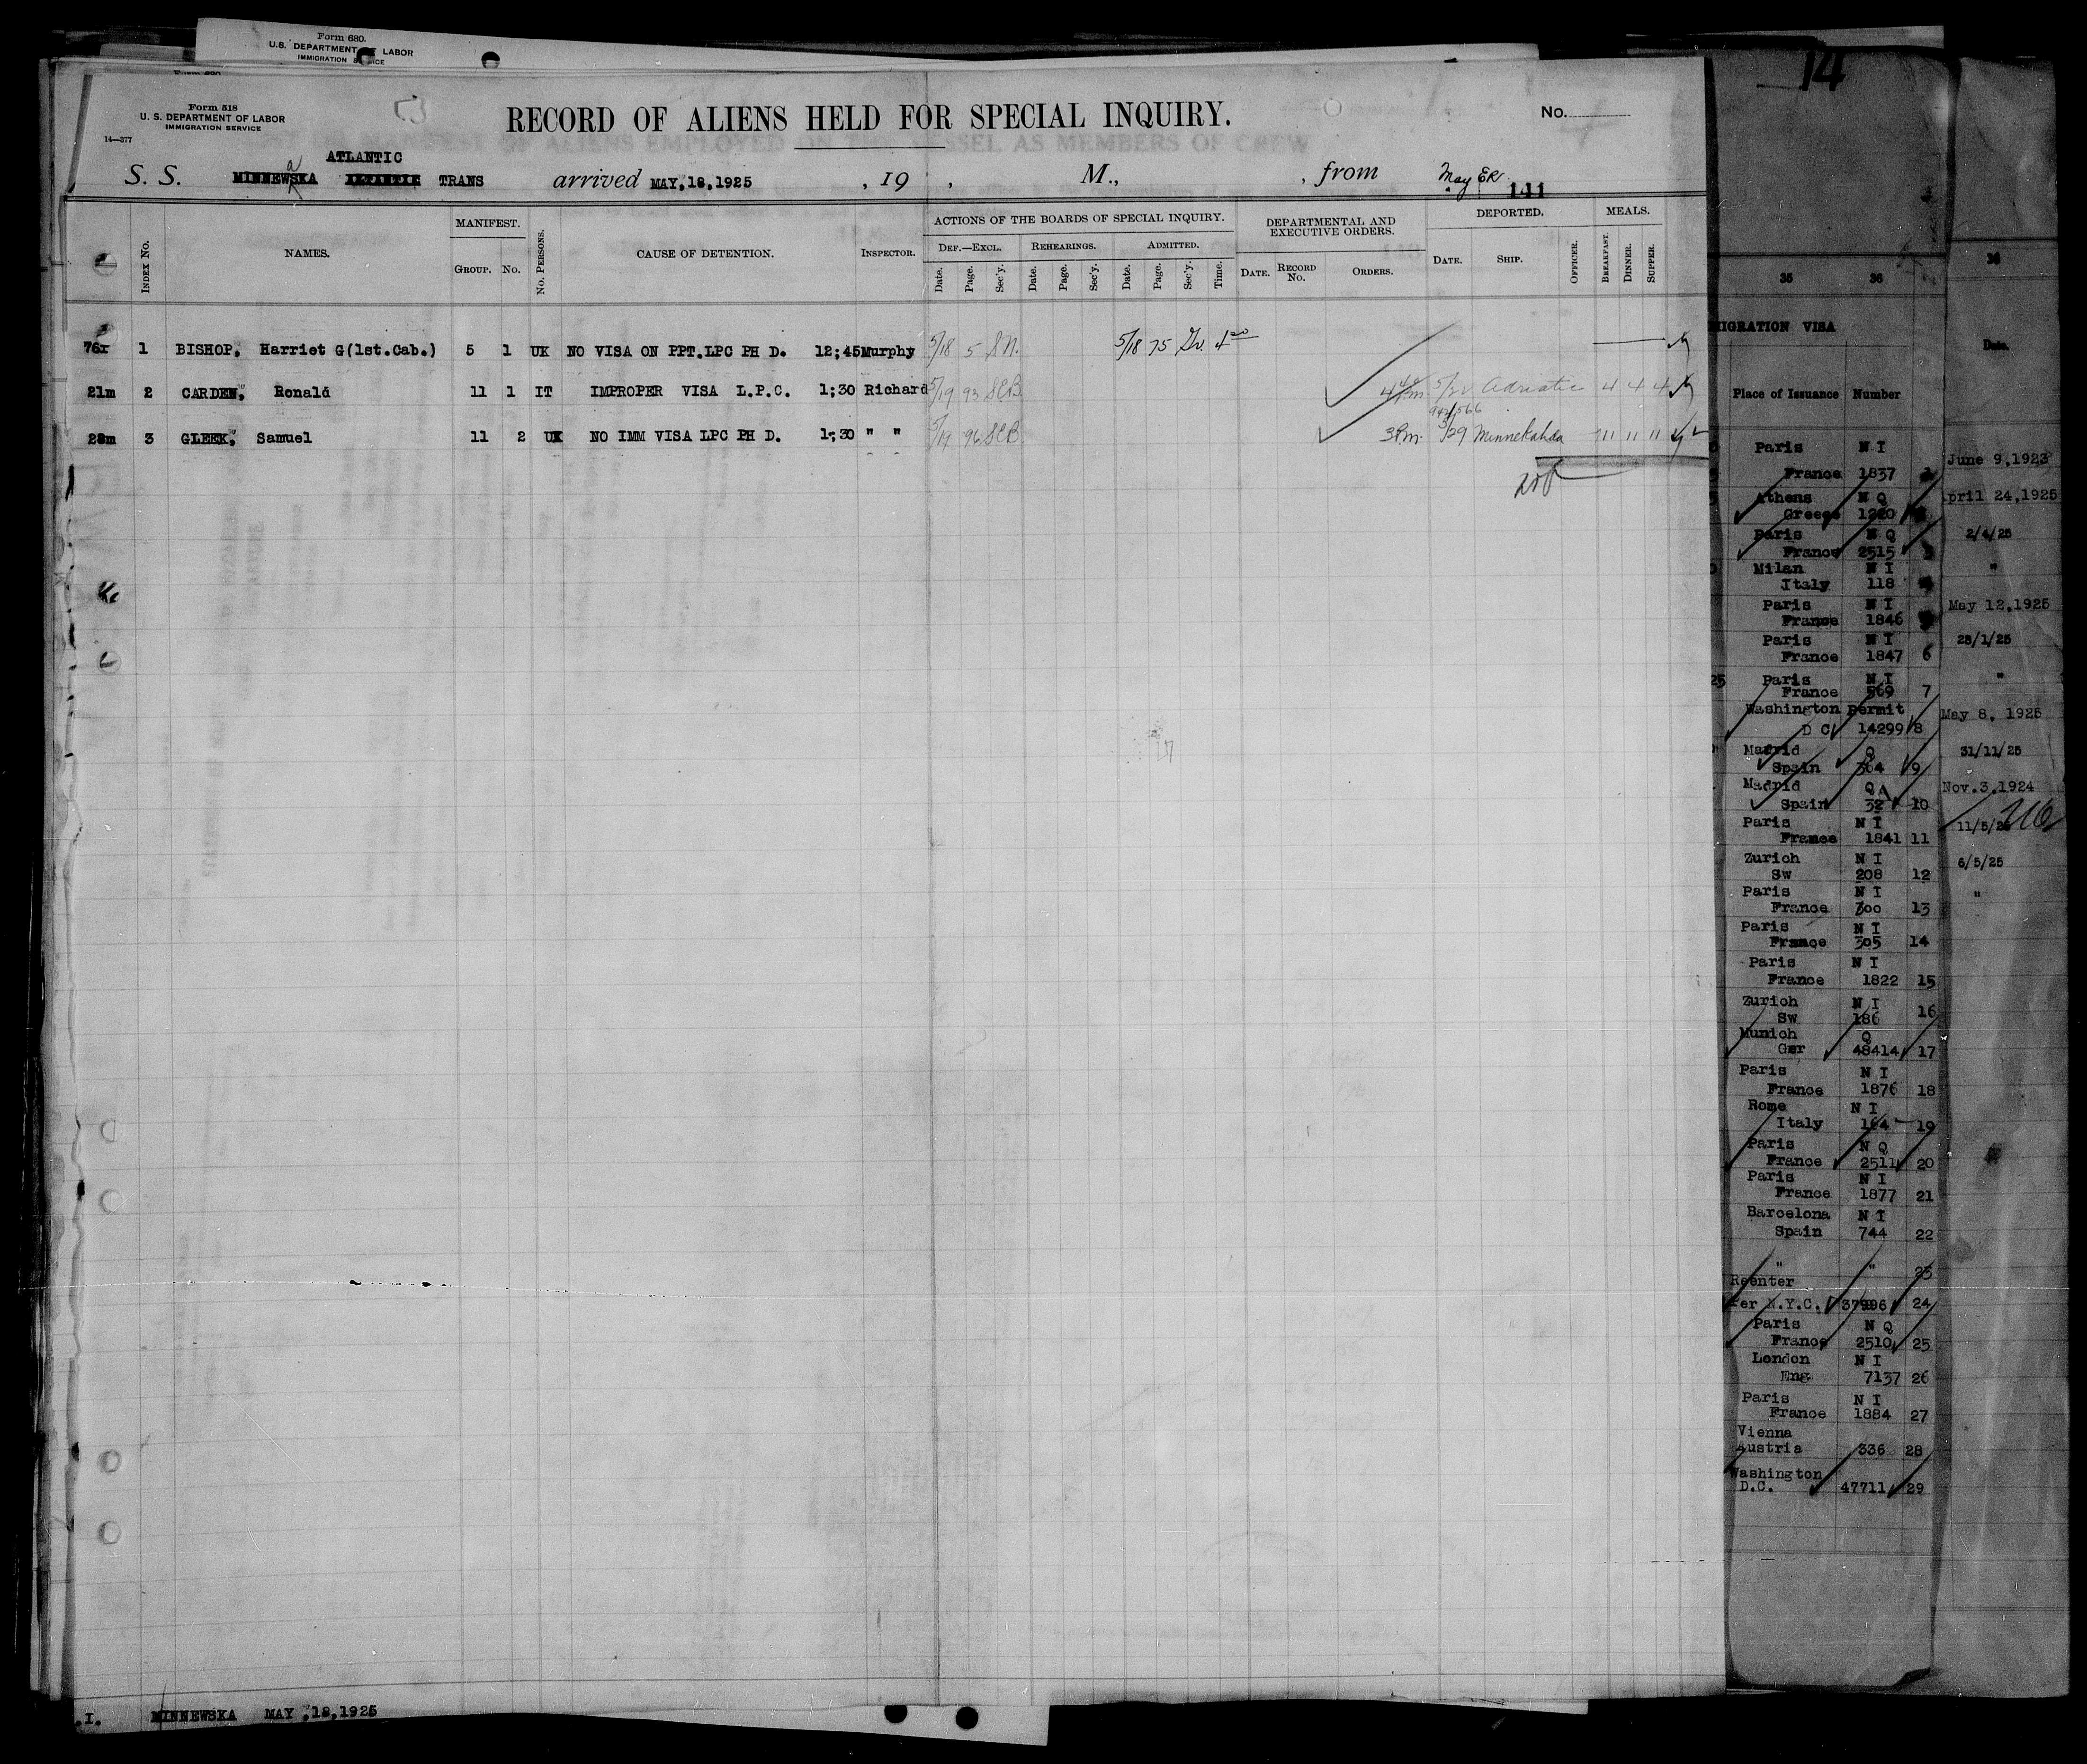 Form 680.
U.S. DEPARTMENT OF LABOR
IMMIGRATION SERVICE
14
Form 518
U. S. DEPARTMENT OF LABOR
IMMIGRATION SERVICE
14—377
53
RECORD OF ALIENS HELD FOR SPECIAL INQUIRY.
No.
ATLANTIC
S. S. MINNEWaSKA TRANS arrived MAY,18,1925 , 19 , M., , from May ER
111
INDEX No.
NAMES.
MANIFEST.
GROUP. No.
No. PERSONS.
CAUSE OF DETENTION.
INSPECTOR.
ACTIONS OF THE BOARDS OF SPECIAL INQUIRY.
DEF.—EXCL. REHEARINGS. ADMITTED.
Date. Page. Sec'y. Date. Page. Sec'y. Date. Page. Sec'y. Time.
DEPARTMENTAL AND
EXECUTIVE ORDERS.
DATE. RECORD No. ORDERS.
DEPORTED.
DATE. SHIP. OFFICER.
MEALS.
BREAKFAST. DINNER. SUPPER.
76r 1 BISHOP, Harriet G(1st.Cab.) 5 1 UK NO VISA ON PPT.LPC PH D. 12;45 Murphy 5/18 5 S.N. 5/18 75 4
21m 2 CARDEN, Ronald 11 1 IT IMPROPER VISA L.P.C. 1;30 Richard 5/19 93 SCB Adriatic 4 4 4
28m 3 GLEEK, Samuel 11 2 UK NO IMM VISA LPC PH D. 1;30 " " 5/19 96 SCB 3Pm. 5/29 Minnekahda 11 11 11
35 36
36
MIGRATION VISA
Date.
Place of Issuance Number
Paris N I
France 1837
June 9,1923
Athens N Q
Greece 1220
April 24,1925
Paris N Q
France 2515
2/4/25
Milan N I
Italy 118
"
Paris N I
France 1846
May 12,1925
Paris N I
France 1847 6
28/1/25
Paris N I
France 569 7
"
Washington Permit
D C 14299 8
May 8, 1925
Madrid Q
Spain 364 9
31/11/25
Madrid Q
Spain 32 10
Nov.3.1924
Paris N I
France 1841 11
11/5/25
Zurich N I
Sw 208 12
6/5/25
Paris N I
France 300 13
"
Paris N I
France 305 14
Paris N I
France 1822 15
Zurich N I
Sw 186 16
Munich Q
Ger 48414 17
Paris N I
France 1876 18
Rome N I
Italy 164 19
Paris N Q
France 2511 20
Paris N I
France 1877 21
Barcelona N I
Spain 744 22
" " 23
Reenter
Per N.Y.C. 37996 24
Paris N Q
France 2510 25
London N I
Eng. 7137 26
Paris N I
France 1884 27
Vienna
Austria 336 28
Washington
D.C. 47711 29
.I. MINNEWSKA MAY ,18,1925